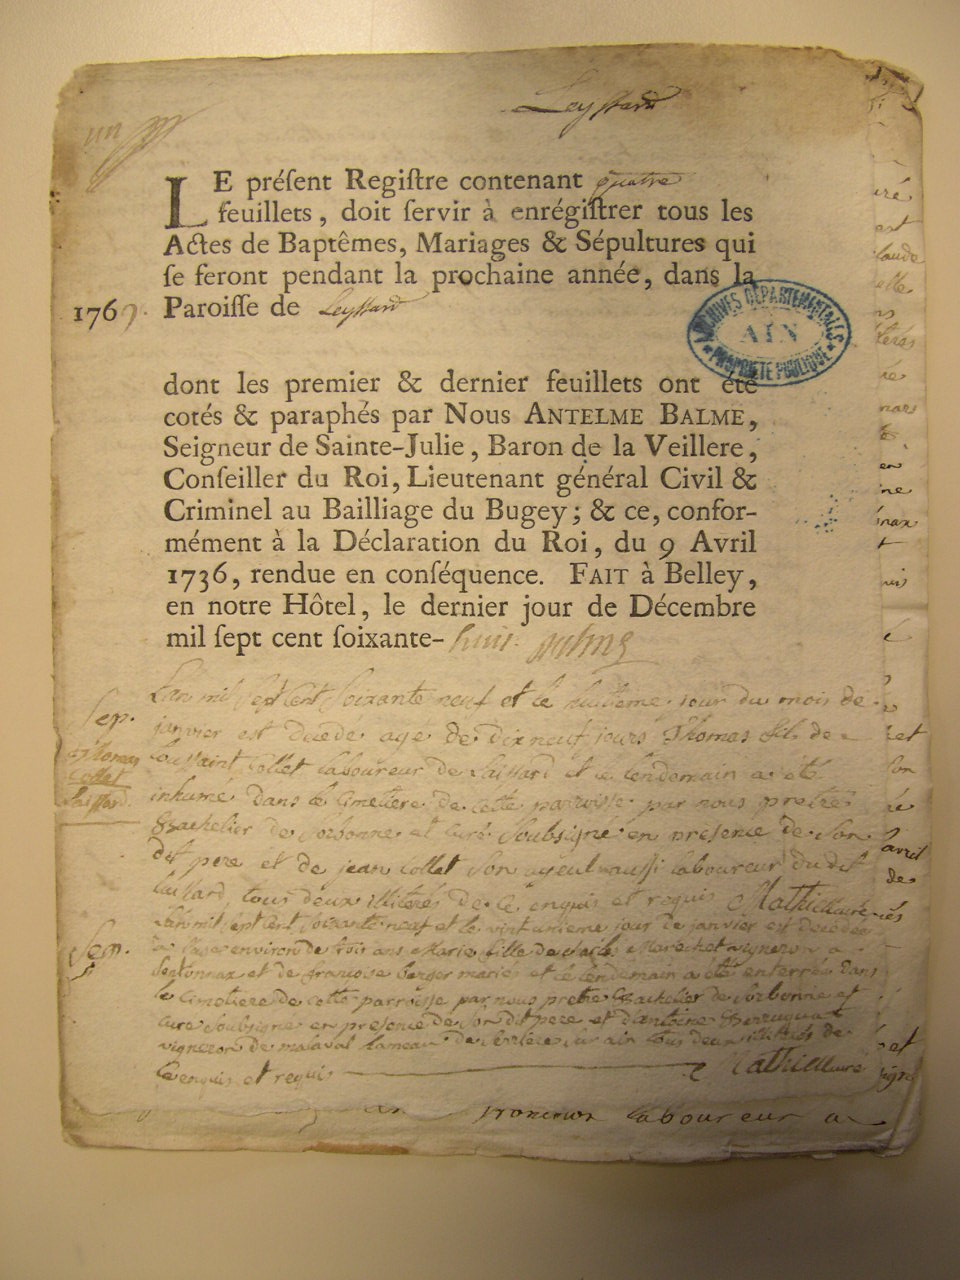 Leyssard
LE préſent Regiſtre contenant quatre
feuillets, doit ſervir à enrégiſtrer tous les
Actes de Baptêmes, Mariages & Sépultures qui
ſe feront pendant la prochaine année, dans la
1769. Paroiſſe de Leyssard
ARCHIVES DÉPARTEMENTALES
AIN
PROPRIÉTÉ PUBLIQUE
dont les premier & dernier feuillets ont été
cotés & paraphés par Nous ANTELME BALME,
Seigneur de Sainte-Julie, Baron de la Veillere,
Conſeiller du Roi, Lieutenant général Civil &
Criminel au Bailliage du Bugey; & ce, confor-
mément à la Déclaration du Roi, du 9 Avril
1736, rendue en conſéquence. FAIT à Belley,
en notre Hôtel, le dernier jour de Décembre
mil ſept cent ſoixante-huit
Sep.
Thomas
Collet
L'an mil sept cent soixante neuf et le huitieme jour du mois de
janvier est decedé agé de dix neuf jours Thomas fils de
Toussaint Collet laboureur de Laissard et le lendemain a eté
inhumé dans le cimetiere de cette parroisse par nous pretre
Bachelier de sorbonne et curé soubsigné en presence de son
dit pere et de jean Collet son ayeul aussi laboureur du dit
Laissard, tous deux illiterés de ce enquis et requis Mathieu curé
Sep.
L'an mil sept cent soixante neuf et le vint unieme jour de janvier est decedée
a l'age environ de trois ans Marie fille de Marechet vigneron a
et de françoise berger mariés et le lendemain a eté enterrée dans
le cimetiere de cette parroisse par nous pretre Bachelier de sorbonne et
curé soubsigné en presence de son dit pere et d'antoine
vigneron de malaval hameau de sur ain tous deux illiterés de
ce enquis et requis Mathieu curé
laboureur a